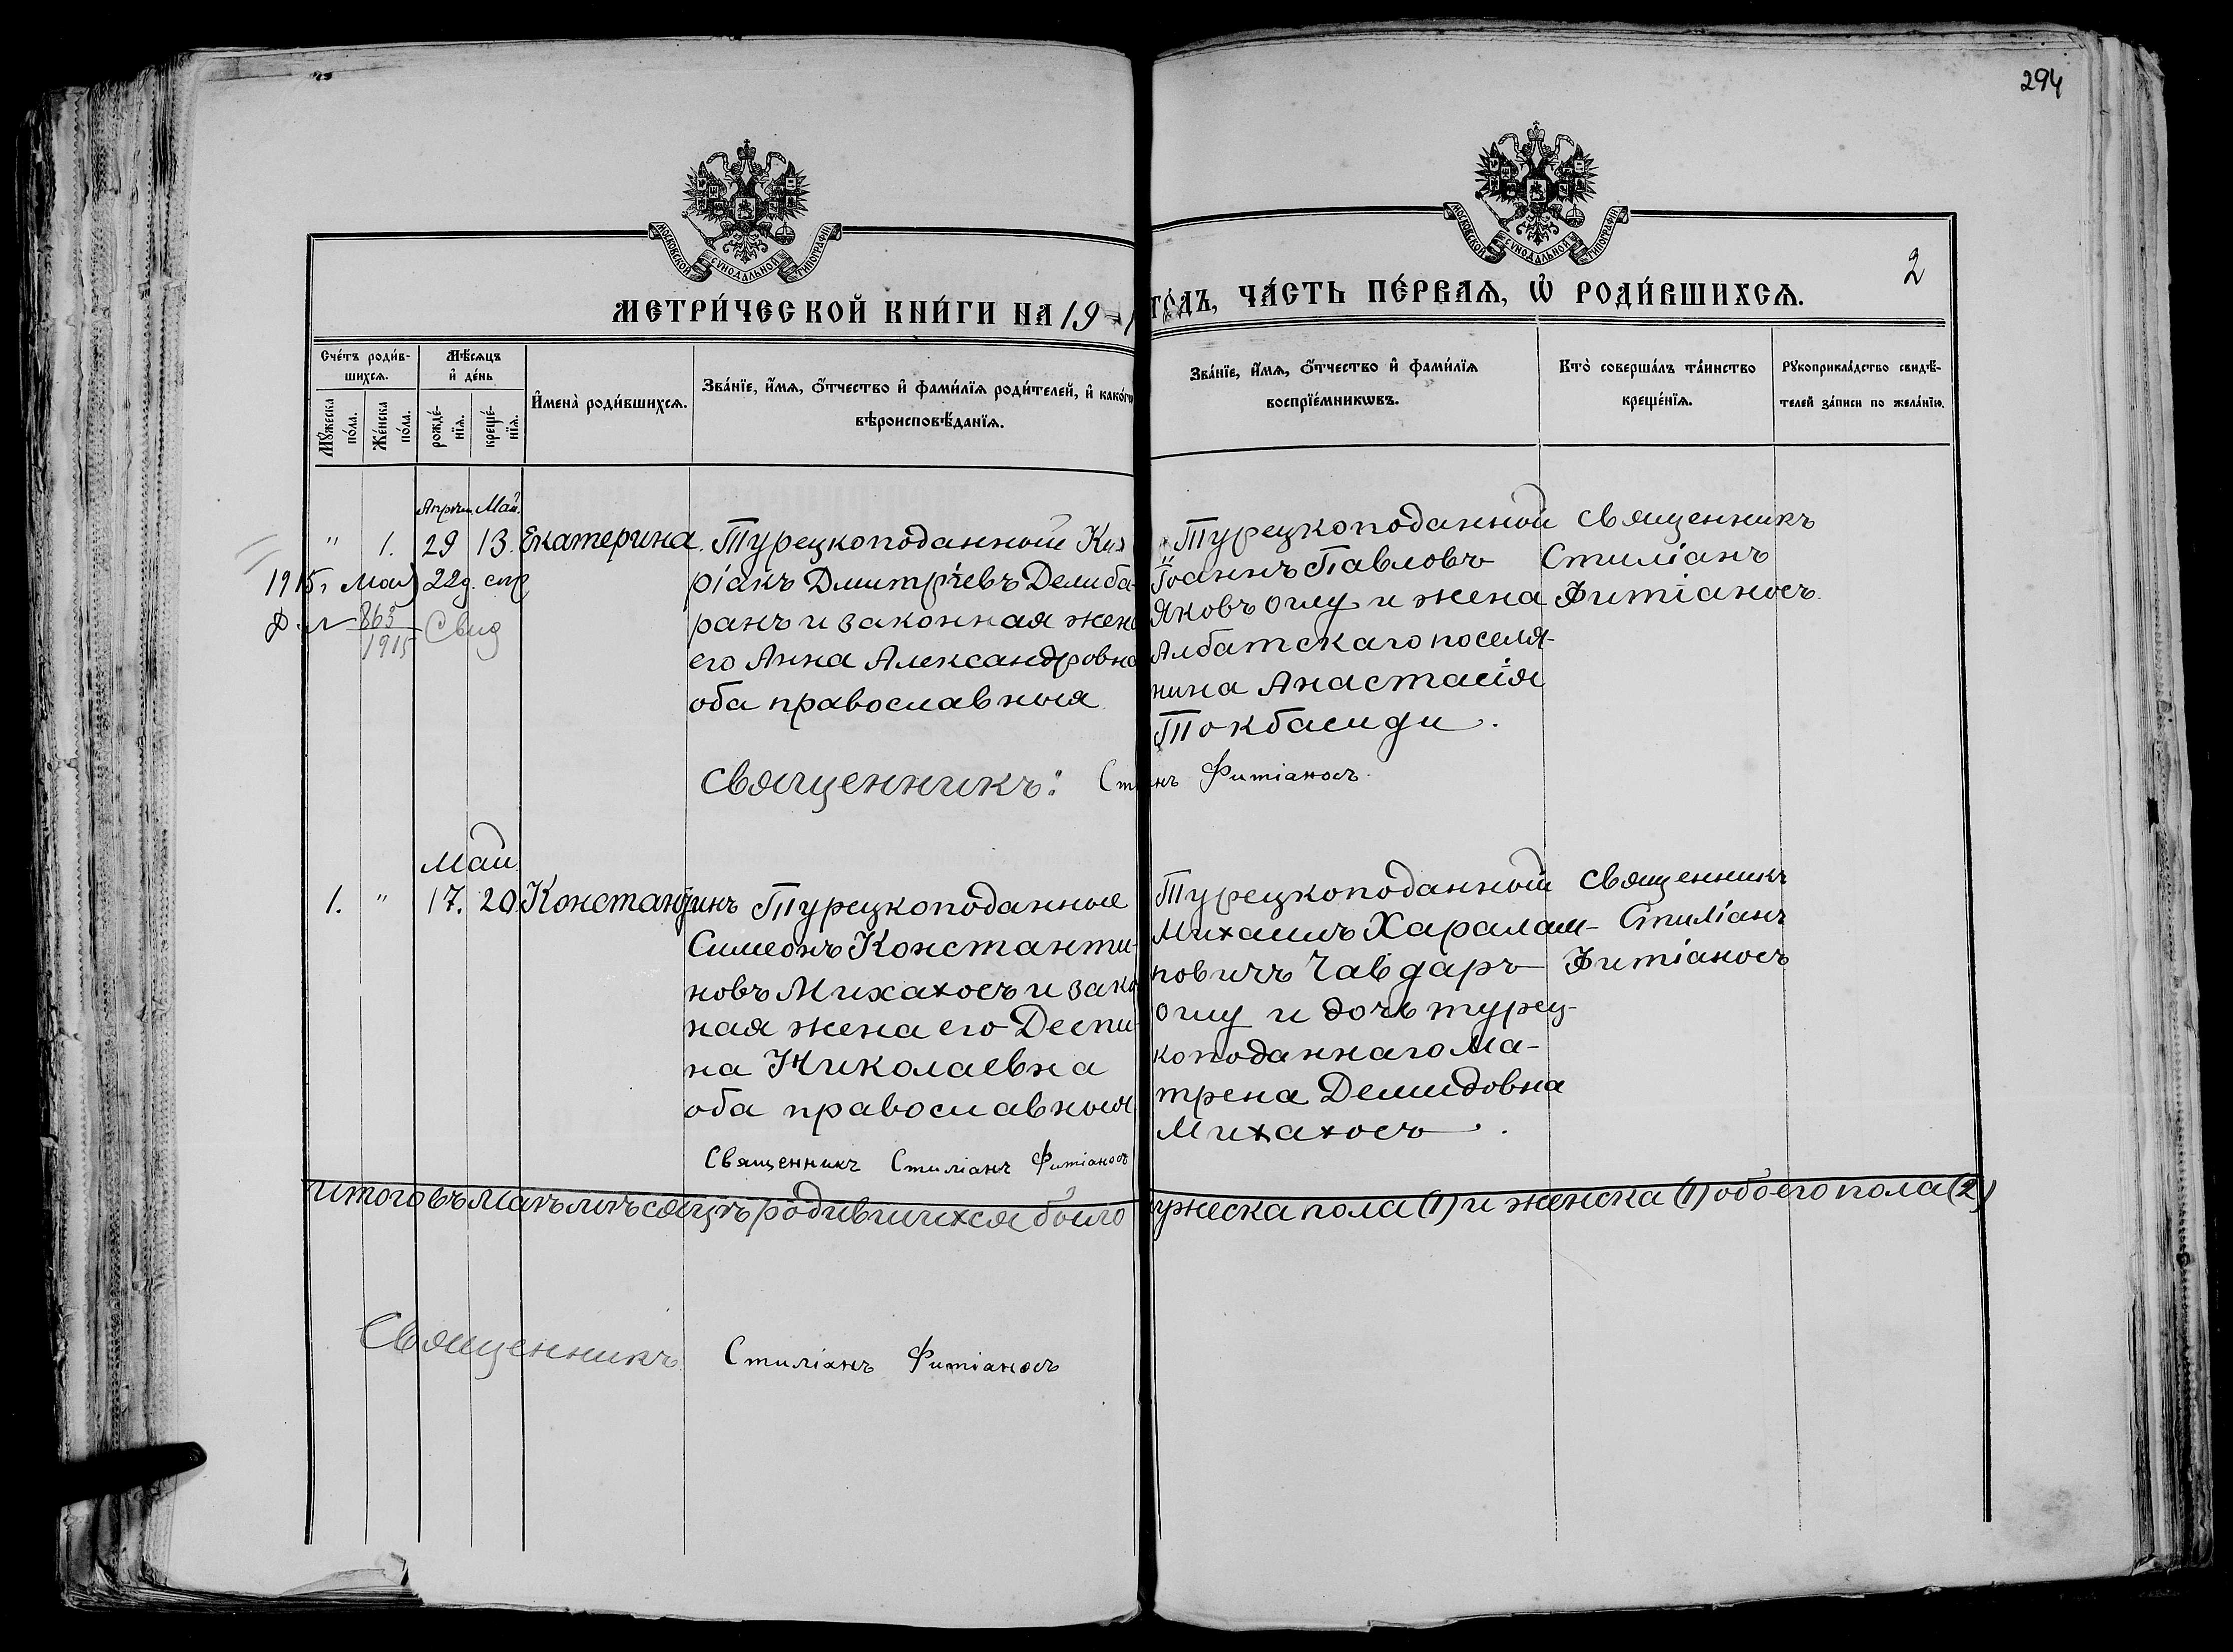 294
МОСКОВСКОЙ СѴНОДАЛЬНОЙ ТИПОГРАФІИ
МОСКОВСКОЙ СѴНОДАЛЬНОЙ ТИПОГРАФІИ
2
МЕТРИ́ЧЕСКОЙ КНИ́ГИ НА 19 ГО́ДЪ, ЧА́СТЬ ПЕ́РВАѦ, Ѡ҆ РОДИ́ВШИХСѦ.
Сче́тъ роди́в-
шихсѧ.
Мꙋ́жеска по́ла.
Же́нска по́ла.
Мѣ́сѧцъ
и҆ де́нь
рожде́-нїѧ.
креще́-нїѧ.
И҆мена̀ роди́вшихсѧ.
Зва́нїе, и҆́мѧ, ѻ҆́тчество и҆ фами́лїѧ роди́телей, и҆ како́гѡ
вѣроисповѣ́данїѧ.
Зва́нїе, и҆́мѧ, ѻ҆́тчество и҆ фами́лїѧ
воспрїе́мникѡвъ.
Кто̀ соверша́лъ та́инство
креще́нїѧ.
Рꙋкоприкла́дство свидѣ́-
телей за́писи по жела́нїю.
Апрѣл. Май.
" 1. 29 13. Екатерина.
1915г Май 22д. стр
865
1915 Свид
Турецкоподанный Ки
ріакъ Дмитріевъ Делиба-
ранъ и законная жен
его Анна Александровна
оба православныя
Турецкоподанной
Іоаннъ Павловъ
Яковъ оглу и жена
Албатскаго поселя-
нина Анастасія
Токбашиди.
Священникъ
Стиліанъ
Фитіаносъ.
Священникъ: Ст нъ Фитіаносъ.
Май
1. " 17. 20 Константинъ
Турецкоподанные
Симеонъ Константи-
новъ Михахосъ и зако
ная жена его Деспи-
на Николаевна
оба православныя
Священникъ Стиліанъ Фитіаносъ
Турецкоподанный
Михаилъ Харалам-
повичъ Чавдаръ
оглу и дочь турец-
коподаннаго Ма-
трена Демидовна
Михахосъ.
Священникъ
Стиліанъ
Фитіаносъ
Итого въ Маѣ мѣсяцѣ родившихся было ужеска пола (1) и женска (1) обоего пола (2)
Священникъ Стиліанъ Фитіаносъ